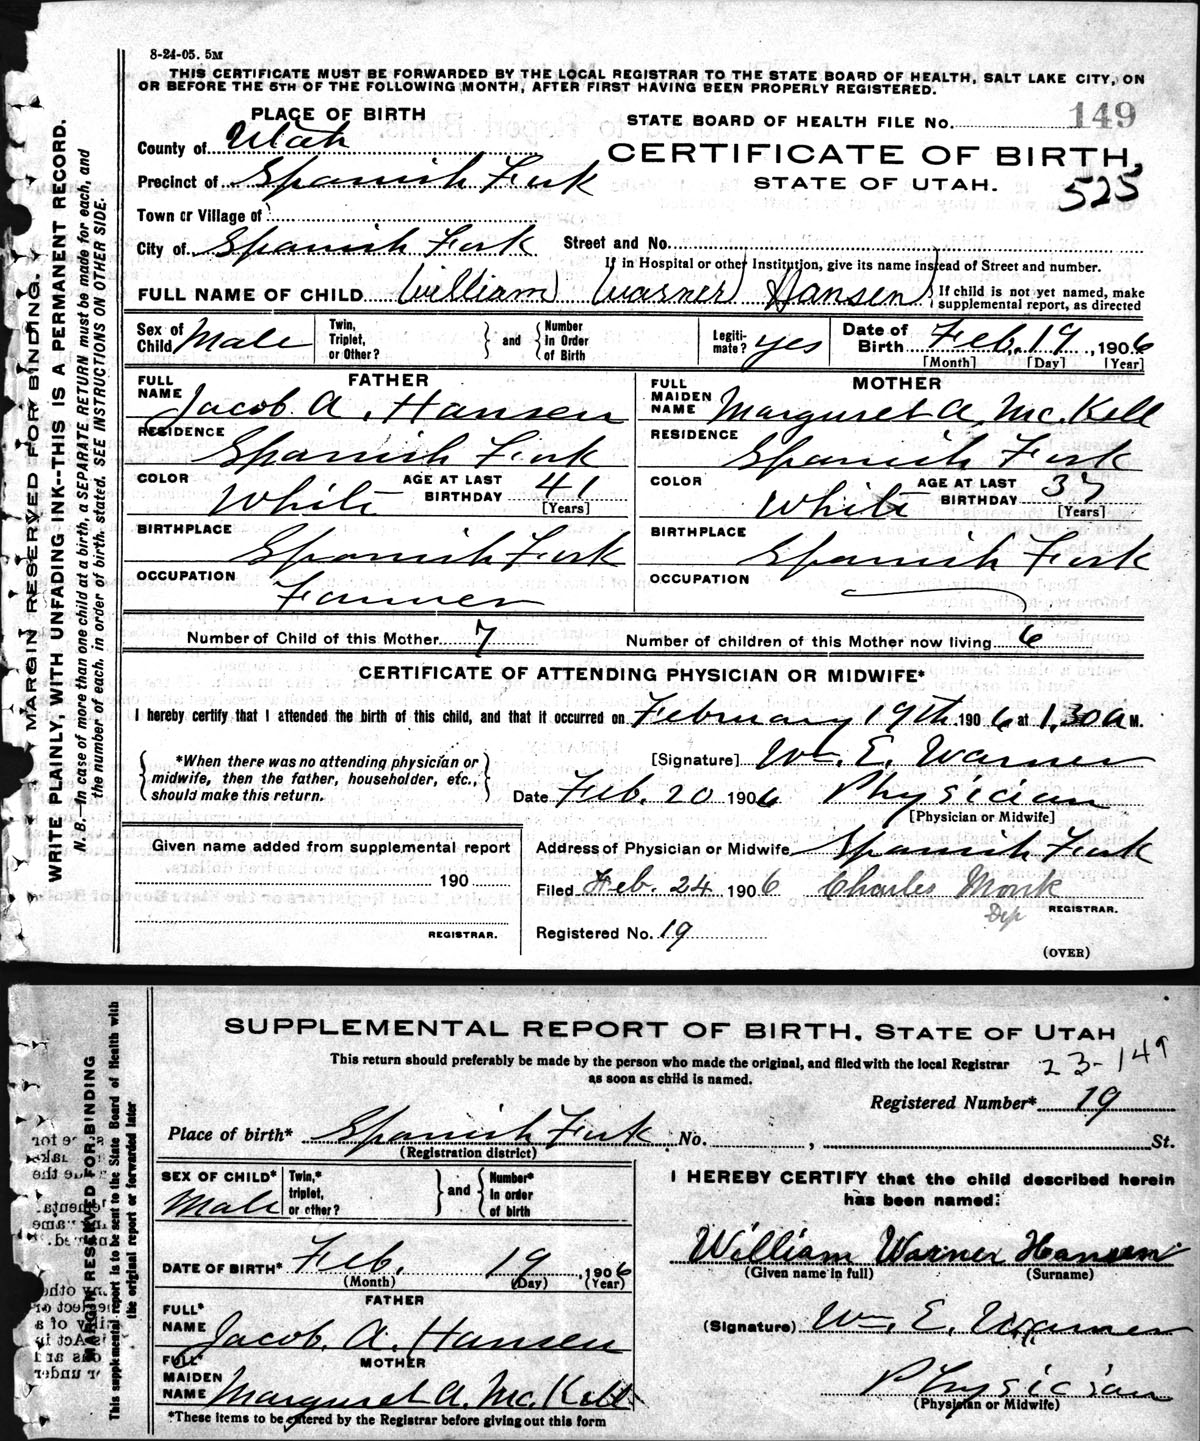 8-24-05. 5M
THIS CERTIFICATE MUST BE FORWARDED BY THE LOCAL REGISTRAR TO THE STATE BOARD OF HEALTH, SALT LAKE CITY, ON
OR BEFORE THE 5TH OF THE FOLLOWING MONTH, AFTER FIRST HAVING BEEN PROPERLY REGISTERED.
PLACE OF BIRTH
STATE BOARD OF HEALTH FILE No. 149
County of Utah
CERTIFICATE OF BIRTH,
Precinct of Spanish Fork
STATE OF UTAH.
525
Town or Village of
City of Spanish Fork
Street and No.
If in Hospital or other Institution, give its name instead of Street and number.
FULL NAME OF CHILD William Warner Hansen
If child is not yet named, make
supplemental report, as directed
Sex of Child Male
Twin, Triplet, or Other?
and
Number in Order of Birth
Legiti-mate? yes
Date of Birth Feb. 19, 1906
[Month] [Day] [Year]
FATHER
FULL NAME Jacob A. Hansen
RESIDENCE Spanish Fork
COLOR White
AGE AT LAST BIRTHDAY 41
[Years]
BIRTHPLACE Spanish Fork
OCCUPATION Farmer
MOTHER
FULL MAIDEN NAME Margaret A. McKell
RESIDENCE Spanish Fork
COLOR White
AGE AT LAST BIRTHDAY 37
[Years]
BIRTHPLACE Spanish Fork
OCCUPATION
Number of Child of this Mother 7
Number of children of this Mother now living 6
CERTIFICATE OF ATTENDING PHYSICIAN OR MIDWIFE*
I hereby certify that I attended the birth of this child, and that it occurred on February 19th. 1906 at 1,30 a M.
*When there was no attending physician or
midwife, then the father, householder, etc.,
should make this return.
[Signature] Wm. E. Warner
Date Feb. 20 1906 Physician
[Physician or Midwife]
Given name added from supplemental report
190
REGISTRAR.
Address of Physician or Midwife Spanish Fork
Filed Feb. 24 1906 Charles Monk
Dep REGISTRAR.
Registered No. 19
(OVER)
MARGIN RESERVED FOR BINDING.
WRITE PLAINLY, WITH UNFADING INK--THIS IS A PERMANENT RECORD.
N. B.—In case of more than one child at a birth, a SEPARATE RETURN must be made for each, and
the number of each, in order of birth, stated. SEE INSTRUCTIONS ON OTHER SIDE.
SUPPLEMENTAL REPORT OF BIRTH, STATE OF UTAH
This return should preferably be made by the person who made the original, and filed with the local Registrar
as soon as child is named.
23-149
Registered Number* 19
Place of birth* Spanish Fork No. , St.
(Registration district)
SEX OF CHILD* Male
Twin,* triplet, or other?
and
Number* in order of birth
DATE OF BIRTH* Feb. 19, 1906
(Month) (Day) (Year)
FATHER
FULL* NAME Jacob. A. Hansen
MOTHER
FULL* MAIDEN NAME Margaret A. McKell
*These items to be entered by the Registrar before giving out this form
I HEREBY CERTIFY that the child described herein
has been named:
William Warner Hansen
(Given name in full) (Surname)
(Signature) Wm. E. Warner
Physician
(Physician or Midwife)
MARGIN RESERVED FOR BINDING
This supplemental report is to be sent to the State Board of Health with
the original report or forwarded later